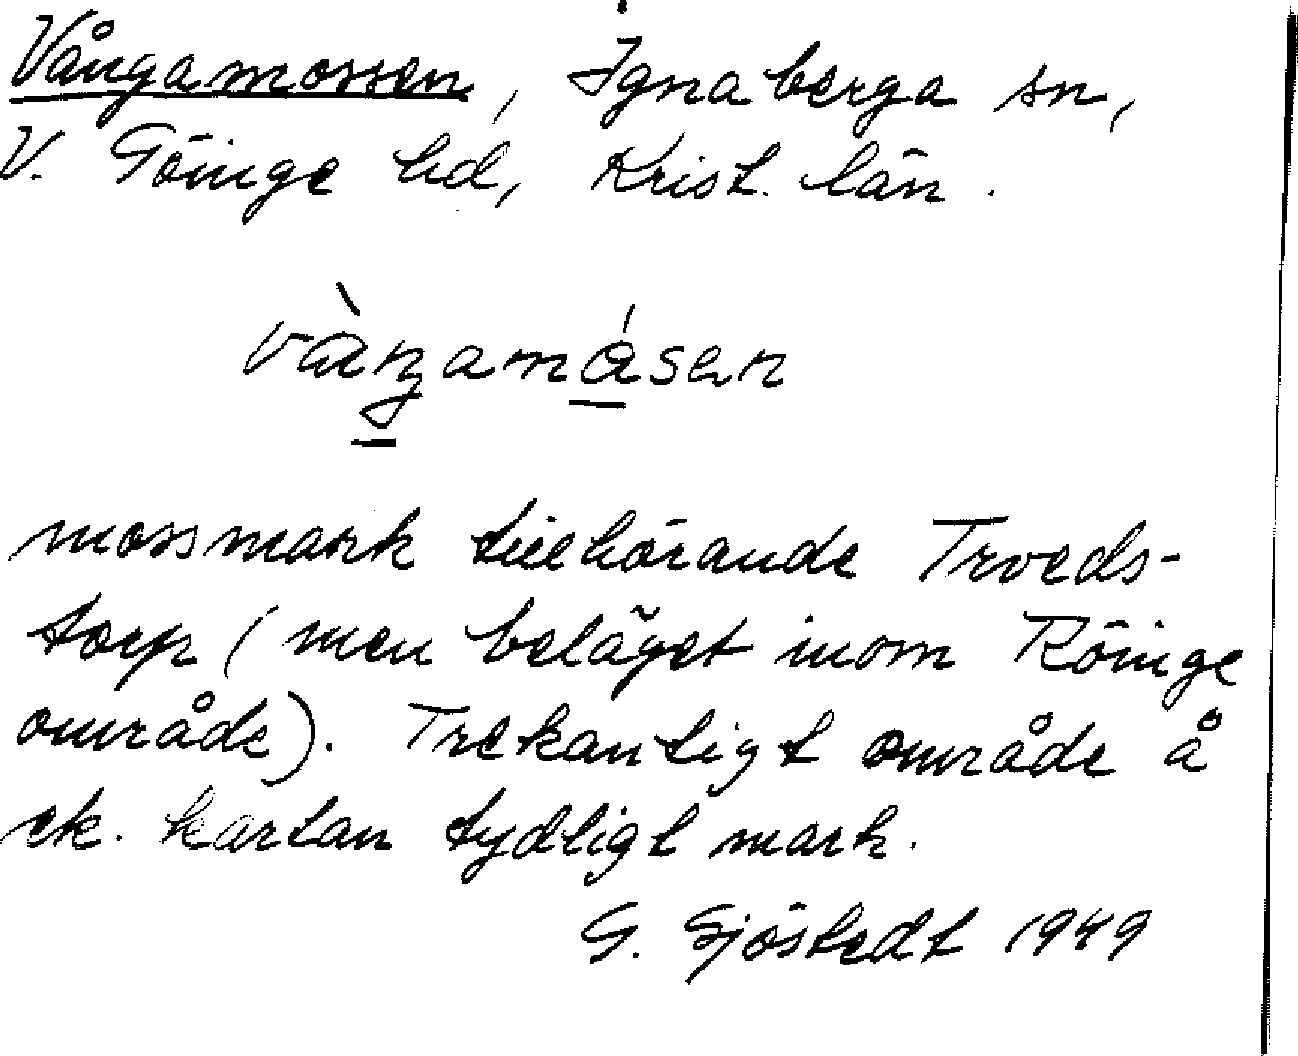 Vångamossen, Ignaberga sn,
V. Göinge hd, Krist. län.
vàŋamásen
mossmark tillhörande Troeds-
torp (men beläget inom Röinge
område). Trekantigt område å
ek. kartan tydligt mark.
G. Sjöstedt 1949